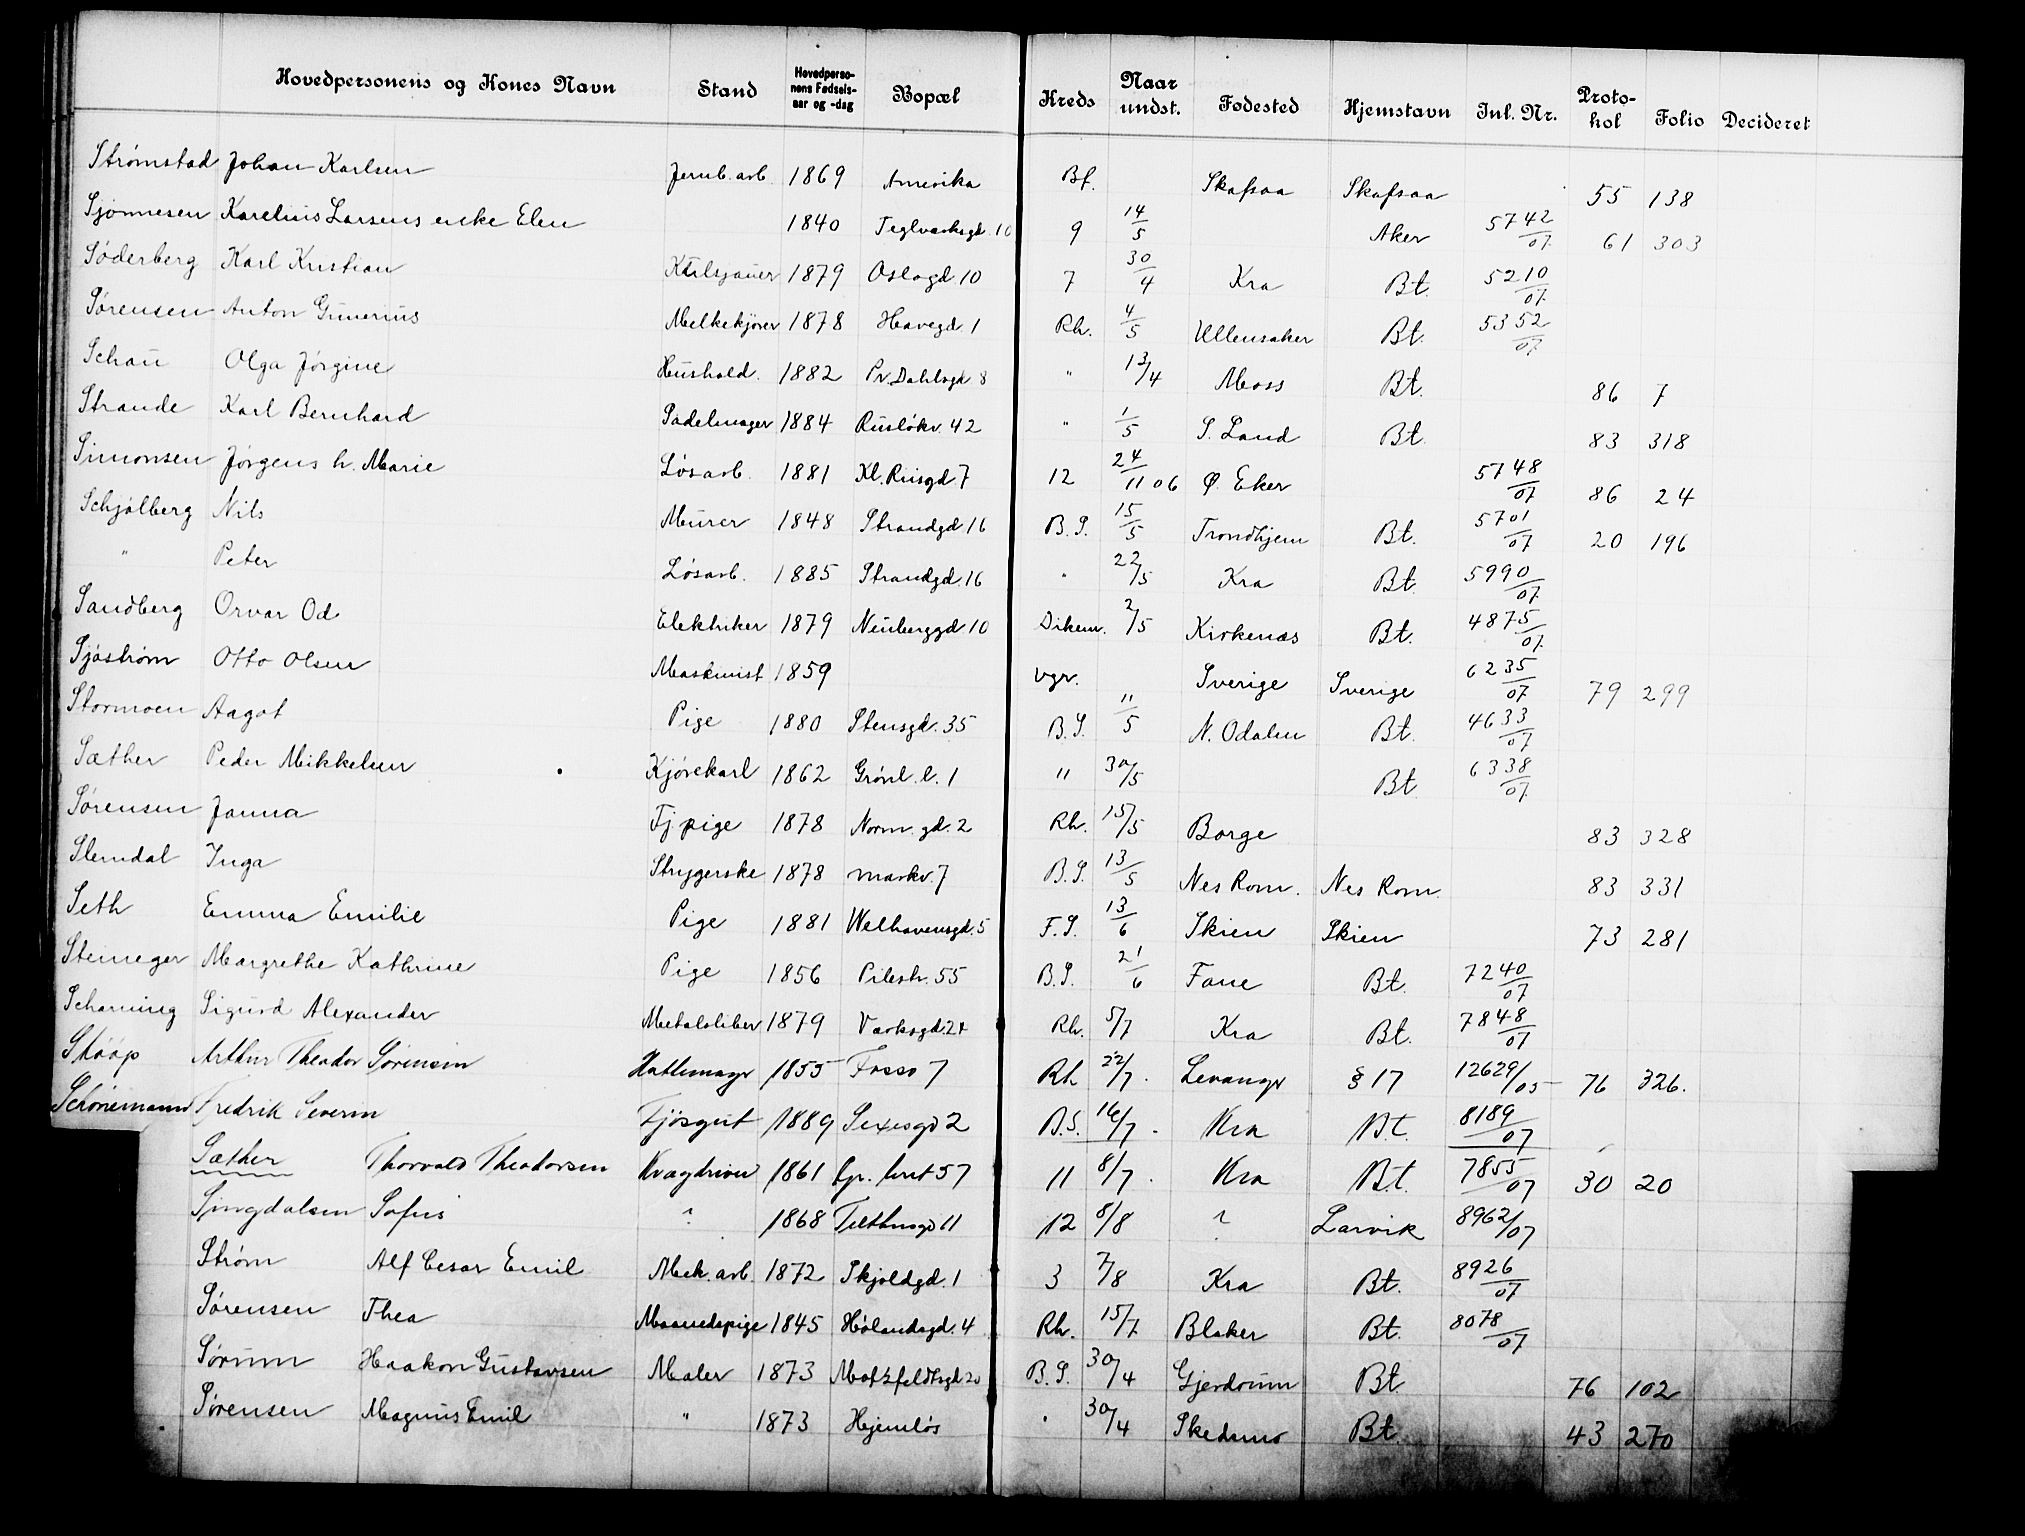 Hovedpersonens og Kones Navn Stand Hovedpersonens Fødselsaar og -dag Bopæl Kreds Naar undst. Fødested Hjemstavn Inl. Nr. Protokol Folio Decideret
Strømstad Johan Karlsen Jernb. arb. 1869 Amerika Bf. Skafsaa Skafsaa 55 138
Sjønnesen Karelius Larsens enke Elen 1840 Teglverksgd. 10 9 14/5 Aker 5742/07 61 303
Søderberg Karl Kristian 1879 Oslogd 10 7 30/4 Kra Bt. 5210/07
Sørensen Anton Gunerius Melkekjører 1878 Havegd. 1 Rh. 4/5 Ullensaker Bt. 5352/07
Schau Olga Jørgine Hushold. 1882 Pr. Dahlsgd 8 " 13/4 Moss Bt. 86 7
Strande Karl Bernhard Sadelmager 1884 Rusløkv. 42 " 1/5 S. Land Bt. 83 318
Simonsen Jørgens h. Marie Løsarb. 1881 Kl. Riisgd 7 12 24/11 06 Ø. Eker 5748/07 86 24
Schjølberg Nils Murer 1848 Strandgd 16 B. S. 15/5 Trondhjem Bt. 5701/07 20 196
" Peter Løsarb. 1885 Strandgd. 16 " 22/5 Kra Bt. 5990/07
Sandberg Orvar Od Elektriker 1879 Neuberggd. 10 Dikem. 2/5 Kirkenæs Bt. 4875/07
Sjøstrøm Otto Olsen Maskinist 1859 vgr. Sverige Sverige 6235/07 79 299
Stormoen Aagot Pige 1880 Stensgd. 35 B. S. 11/5 N. Odalen Bt. 4633/07
Sæther Peder Mikkelsen Kjørekarl 1862 Grønl. l. 1 " 30/5 Bt. 6338/07
Sørensen Janna Tj. pige 1878 Norm. gd. 2 Rh. 15/5 Borge 83 328
Stendal Inga Strygerske 1878 markv. 7 B. S. 13/5 Nes Rom. Nes Rom. 83 331
Seth Emma Emilie Pige 1881 Welhavensgd. 5 F. S. 13/6 Skien Skien 73 281
Steineger Margrethe Kathrine Pige 1856 Pilestr. 55 B. S. 21/6 Fane Bt. 7240/07
Scharning Sigurd Alexander Metalsliber 1879 Verksgd. 24 Rh. 5/7 Kra Bt. 7848/07
Skååp Arthur Theodor Sørensen Hattemager 1855 Fossv 7 Rh 22/7. Levanger § 17 12629/05 76 326.
Schønemann Fredrik Severin Tjøsgut 1889 Sexesgd 2 B. S. 16/7. Kra Bt. 8189/07
Sæther Thorvald Theodorsen Kvægdriver 1861 57 11 8/7. Kra Bt. 7855/07 30 20
Sjingdalsen Sofus ? 1868 Tilthusgd 11 12 8/8 ? Larvik 8962/07
Strøm Alf Cesar Emil Mek. arb. 1872 Skjoldgd. 1 3 7/8 Kra Bt. 8926/07
Sørensen Thea Maanedspige 1845 Hølandsgd. 4 Rh. 15/7 Blaker Bt. 8078/07
Sørum Haakon Gustavsen Maler 1873 Motzfeldtsgd 20 B. S. 30/4 Gjerdrum Bt. 76 102
Sørensen Magnus Emil " 1873 Hjemløs " 30/4 Skedsmo Bt. 43 270